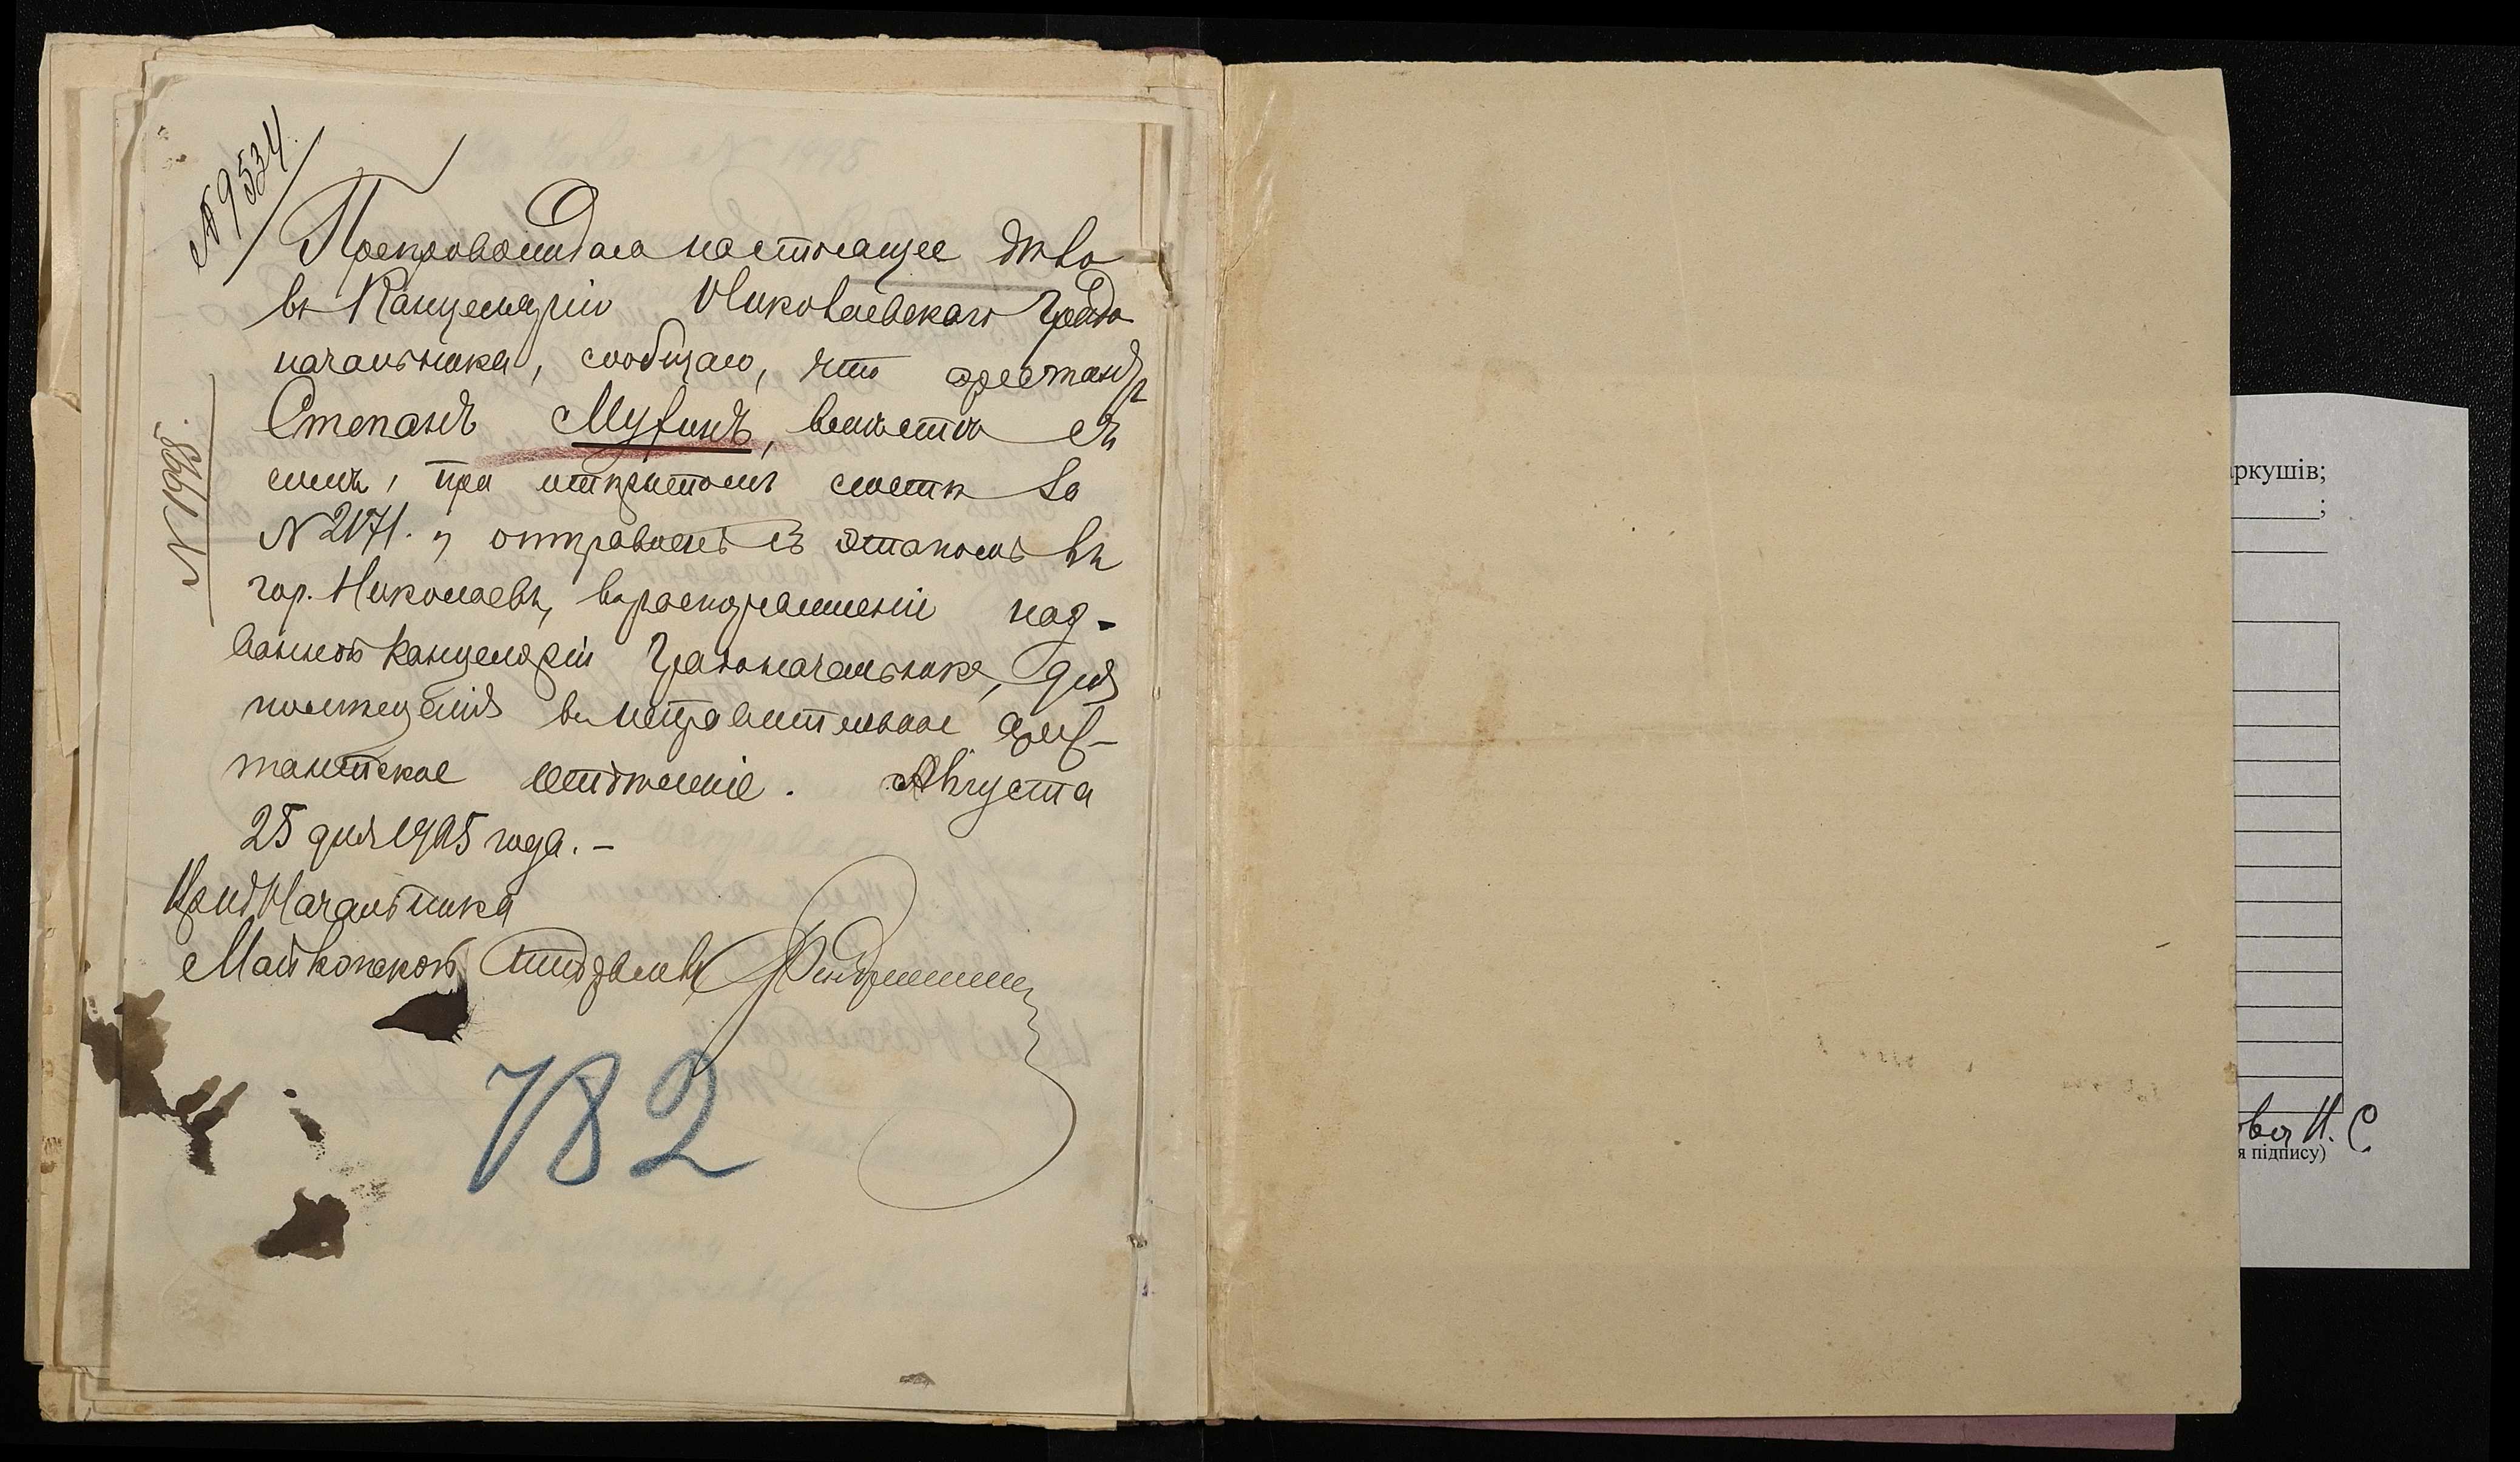 № 9534.
Препровождая настоящее дѣло
въ Канцелярію Николаевскаго Градо
начальника, сообщаю, что арестантъ
Степанъ Мухинъ, вмѣстѣ съ
симъ, при открытомъ листѣ за
№ 2171. отправленъ этапомъ въ
гор. Николаевъ, въ распоряженіе наз-
ванной Канцеляріи Градоначальника, для
помѣщенія въ исправительное арес-
тантское отдѣленіе. Августа
25 дня 1905 года. –
№ 1998.
Начальника
Майкопскаго
782
аркушів;
;
ова Н. С
я підпису)